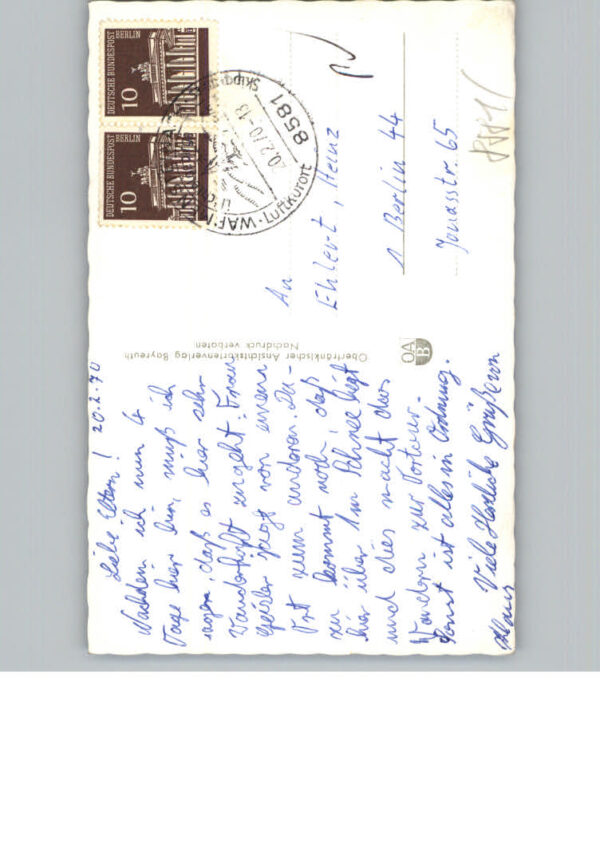 Liebe Eltern! 20.2.70
Nachdem ich nun 4
Tage hier bin, muß ich
sagen, daß es hier sehr
Wanderhaft zugeht. Frau
jagt von einem
Ort zum anderen. Da-
zu kommt noch, daß
hier über 1m Schnee liegt
und dies macht das
Wandern zur Tortour.
Sonst ist alles in Ordnung.
Viele Herzliche Grüße von
Oberfränkischer Ansichtskartenverlag Bayreuth
Nachdruck verboten
OA
B
DEUTSCHE BUNDESPOST
BERLIN
10
DEUTSCHE BUNDESPOST
BERLIN
10
8581
20.2.70-13
Luftkurort
An
Ehlert, Heinz
1 Berlin 44
Jonasstr. 65